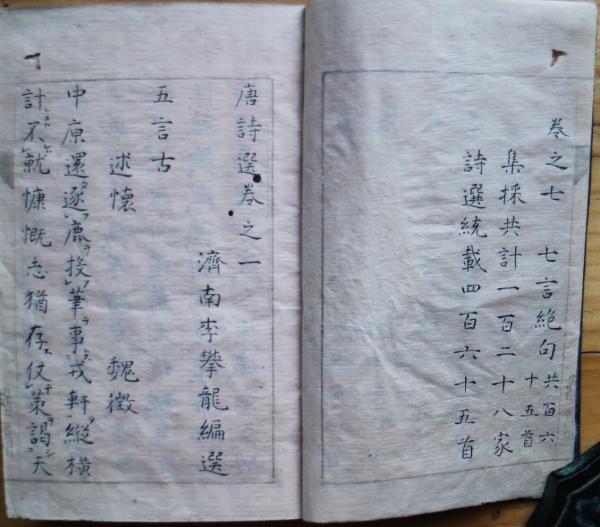 卷之七 七言絕句共百六十五首
集採共計一百二十八家
詩選統載四百六十五首
唐詩選卷之一
濟南李攀龍編選
五言古
述懷 魏徵
中原還逐鹿投筆事戎軒縱橫
計不就慷慨志猶存仗策謁天